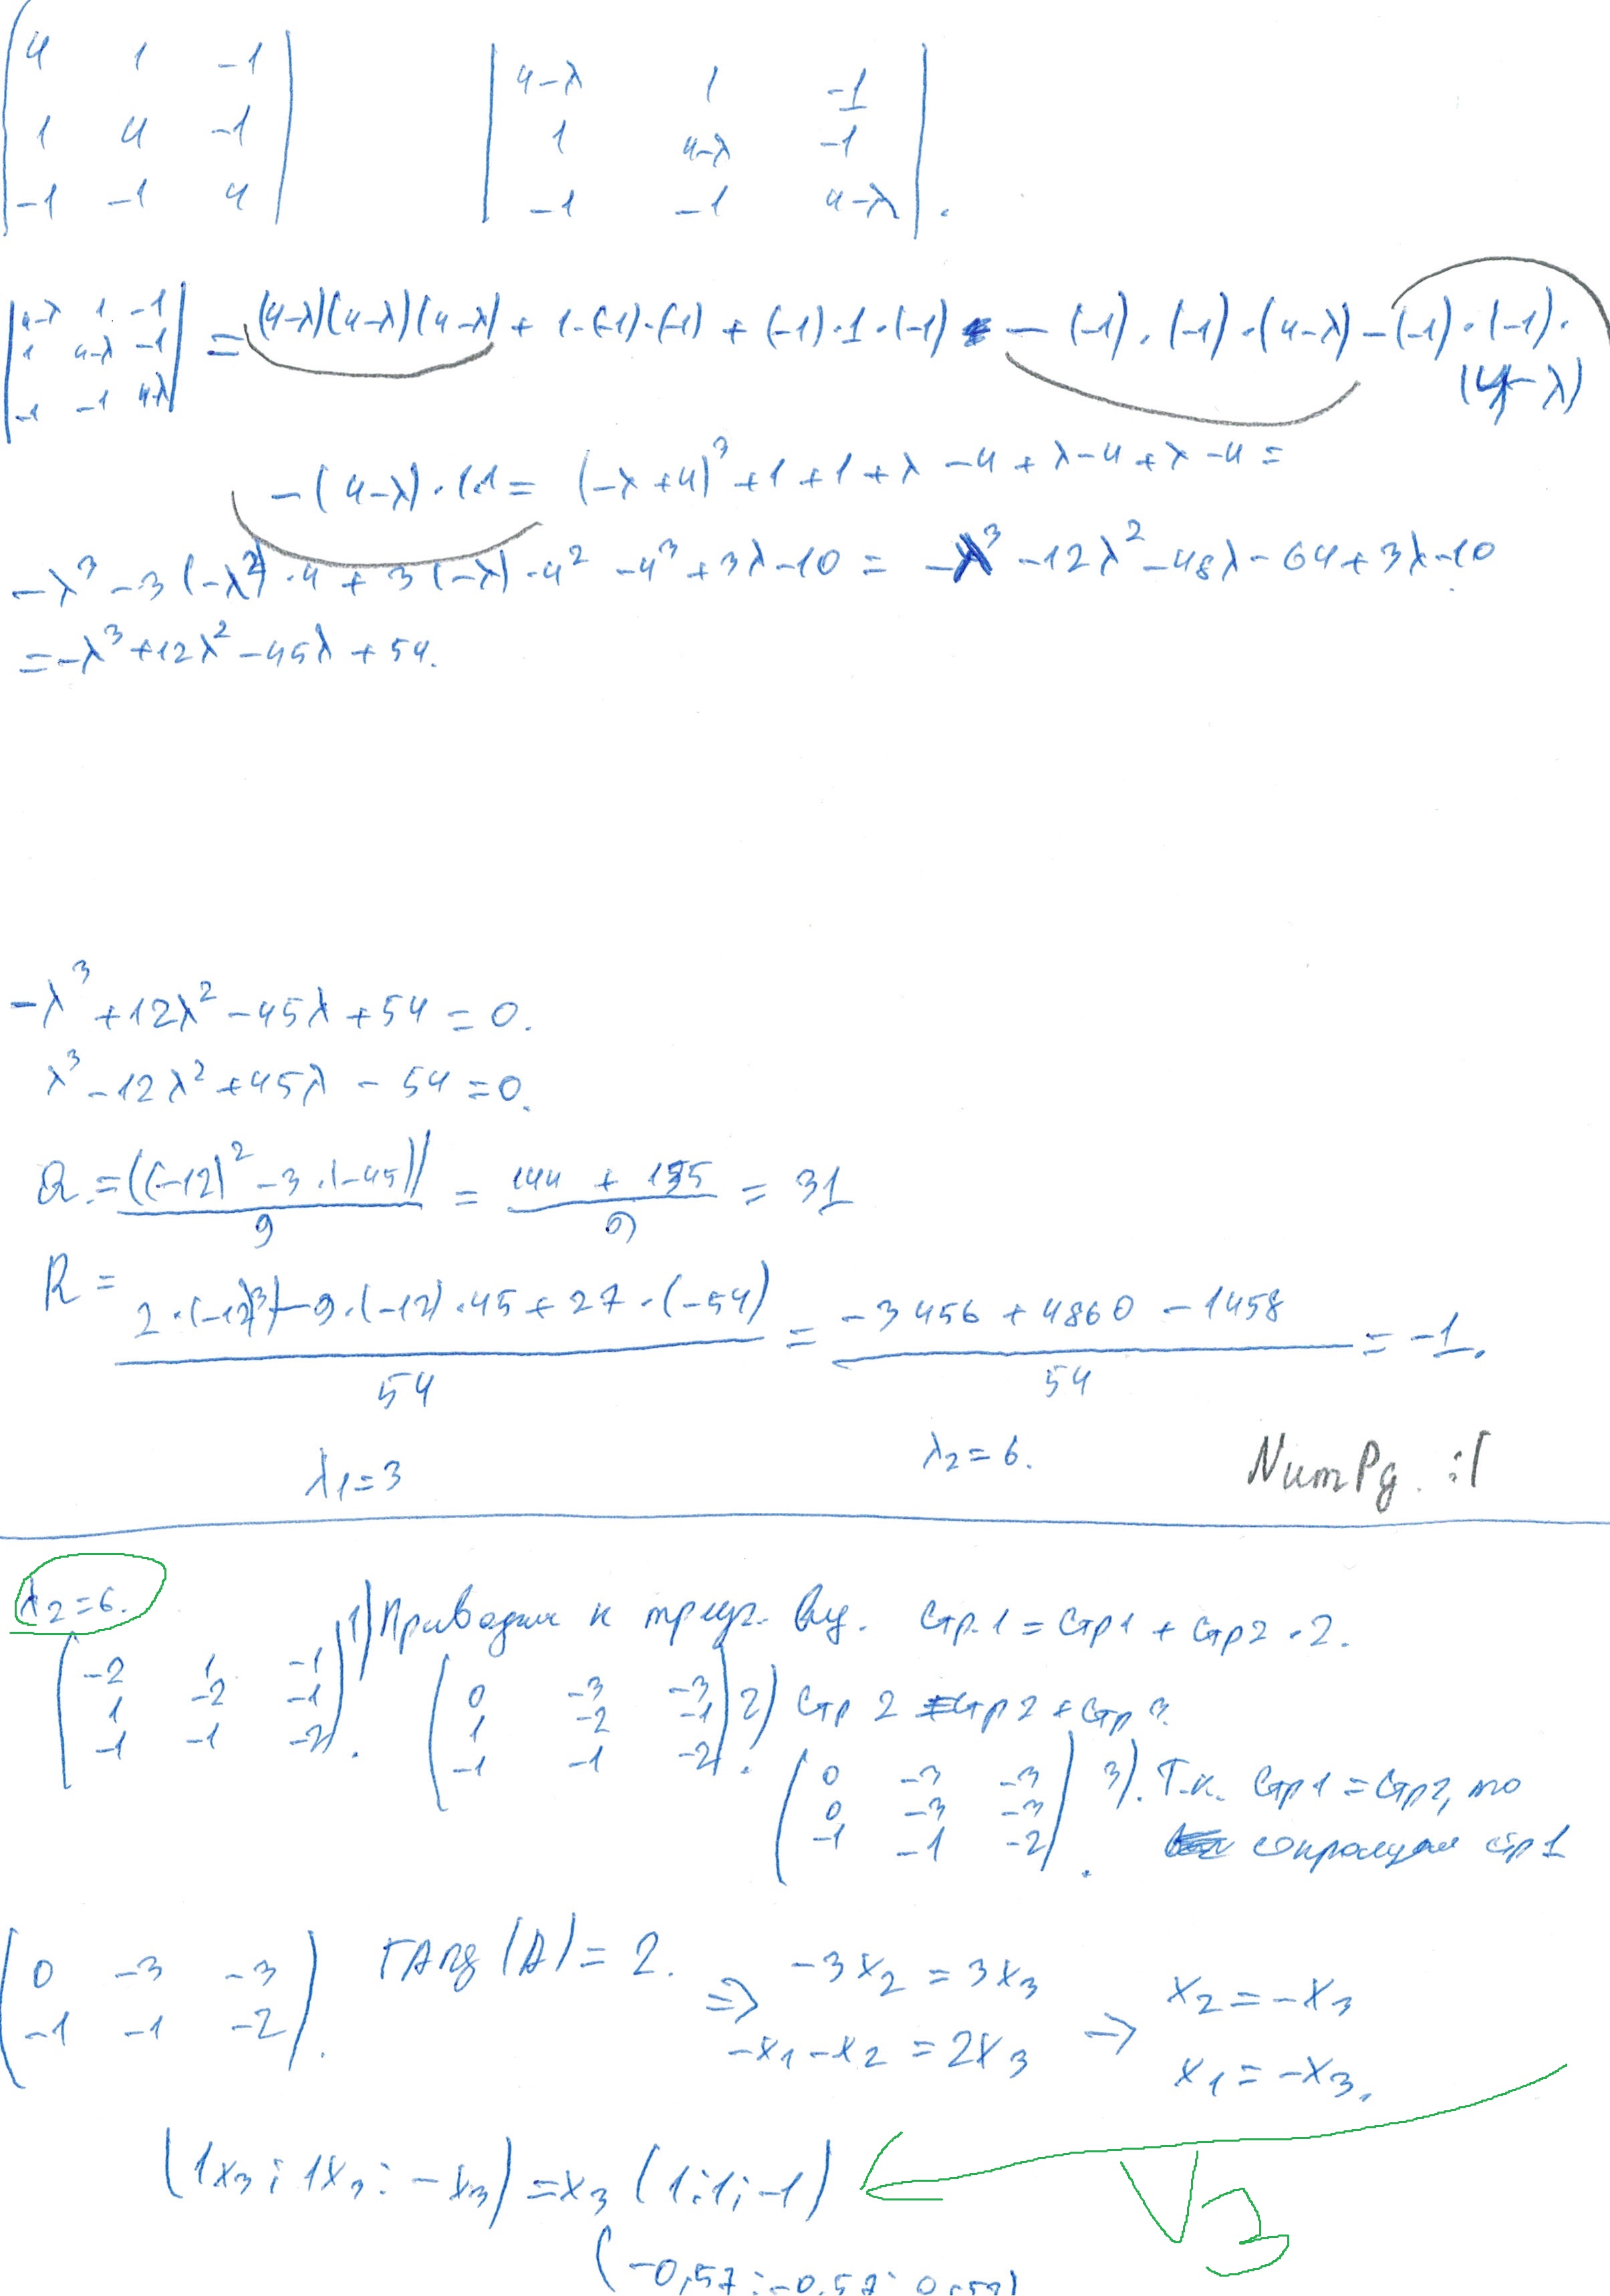 4 1 -1 | 4-λ 1 -1
1 4 -1 | 1 4-λ -1
-1 -1 4 | -1 -1 4-λ .
| 4-λ 1 -1 |
| 1 4-λ -1 | = (4-λ)(4-λ)(4-λ) + 1·(-1)·(-1) + (-1)·1·(-1) - (-1)·(-1)·(4-λ) - (-1)·(-1)·
| -1 -1 4-λ | (4-λ)
-(4-λ)·1·1 = (-λ+4)³ + 1 + 1 + λ - 4 + λ - 4 + λ - 4 =
-λ³ - 3(-λ²)·4 + 3(-λ)·4² - 4³ + 3λ - 10 = -λ³ - 12λ² - 48λ - 64 + 3λ - 10
= -λ³ + 12λ² - 45λ + 54.
-λ³ + 12λ² - 45λ + 54 = 0.
λ³ - 12λ² + 45λ - 54 = 0.
Q = ((-12)² - 3·(-45)) / 9 = 144 + 135 / 9 = 31
R = 2·(-12³) - 9·(-12)·45 + 27·(-54) / 54 = -3456 + 4860 - 1458 / 54 = -1.
λ1 = 3 λ2 = 6. NumPg. :1
λ2 = 6. 1) Приводим к треуг. виду. Стр.1 = Стр1 + Стр2·2.
-2 1 -1
1 -2 -1
-1 -1 -2 .
0 -3 -3
1 -2 -1
-1 -1 -2 .
2) Стр 2 = Стр 2 + Стр 3.
0 -3 -3
0 -3 -3
-1 -1 -2 .
3). Т.к. Стр1 = Стр2, то
сокращаем стр1
0 -3 -3
-1 -1 -2 .
rang (A) = 2. ⇒ -3x2 = 3x3 → x2 = -x3
-x1 - x2 = 2x3 x1 = -x3.
(1x3; 1x3; -x3) = x3 (1; 1; -1)
V3
(-0,57; -0,57; 0,57)